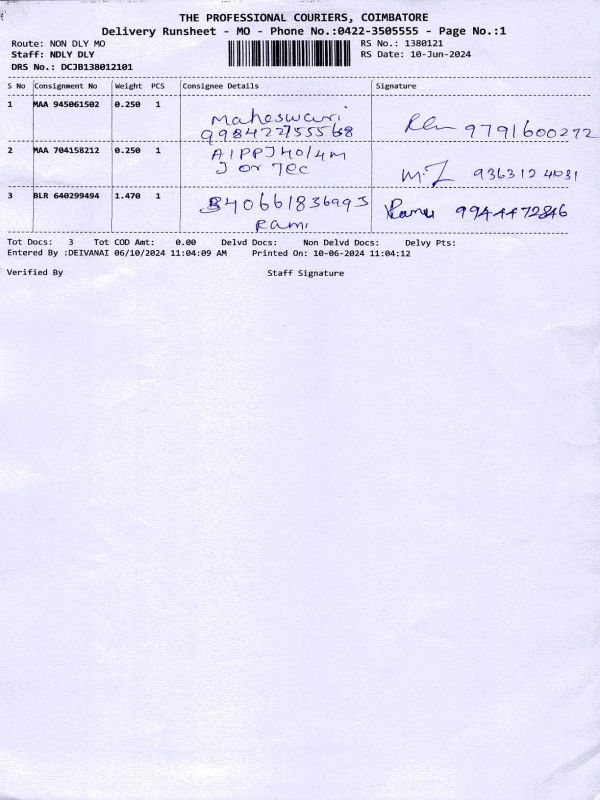 THE PROFESSIONAL COURIERS, COIMBATORE
Delivery Runsheet - MO - Phone No.:0422-3505555 - Page No.:1
Route: NON DLY MO RS No.: 1380121
Staff: NDLY DLY RS Date: 10-Jun-2024
DRS No.: DCJB138012101
S No Consignment No Weight PCS Consignee Details Signature
1 MAA 945061502 0.250 1 Maheswari
9791600272
2 MAA 704158212 0.250 1
M.Z 9363124031
3 BLR 640299494 1.470 1
9944472846
Rami
Tot Docs: 3 Tot COD Amt: 0.00 Delvd Docs: Non Delvd Docs: Delvy Pts:
Entered By :DEIVANAI 06/10/2024 11:04:09 AM Printed On: 10-06-2024 11:04:12
Verified By Staff Signature